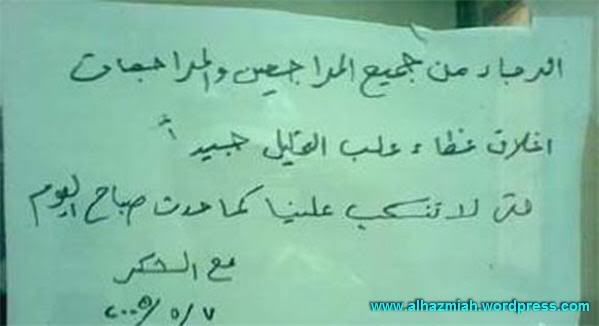 الرجاء من جميع المراجعين والمراجعات
اغلاق غطاء علب التحليل جيداً
حتى لا تنسكب علينا كما حدث صباح اليوم
مع الشكر
٢٠٠٥/٥/٧
www.alhazmiah.wordpress.com